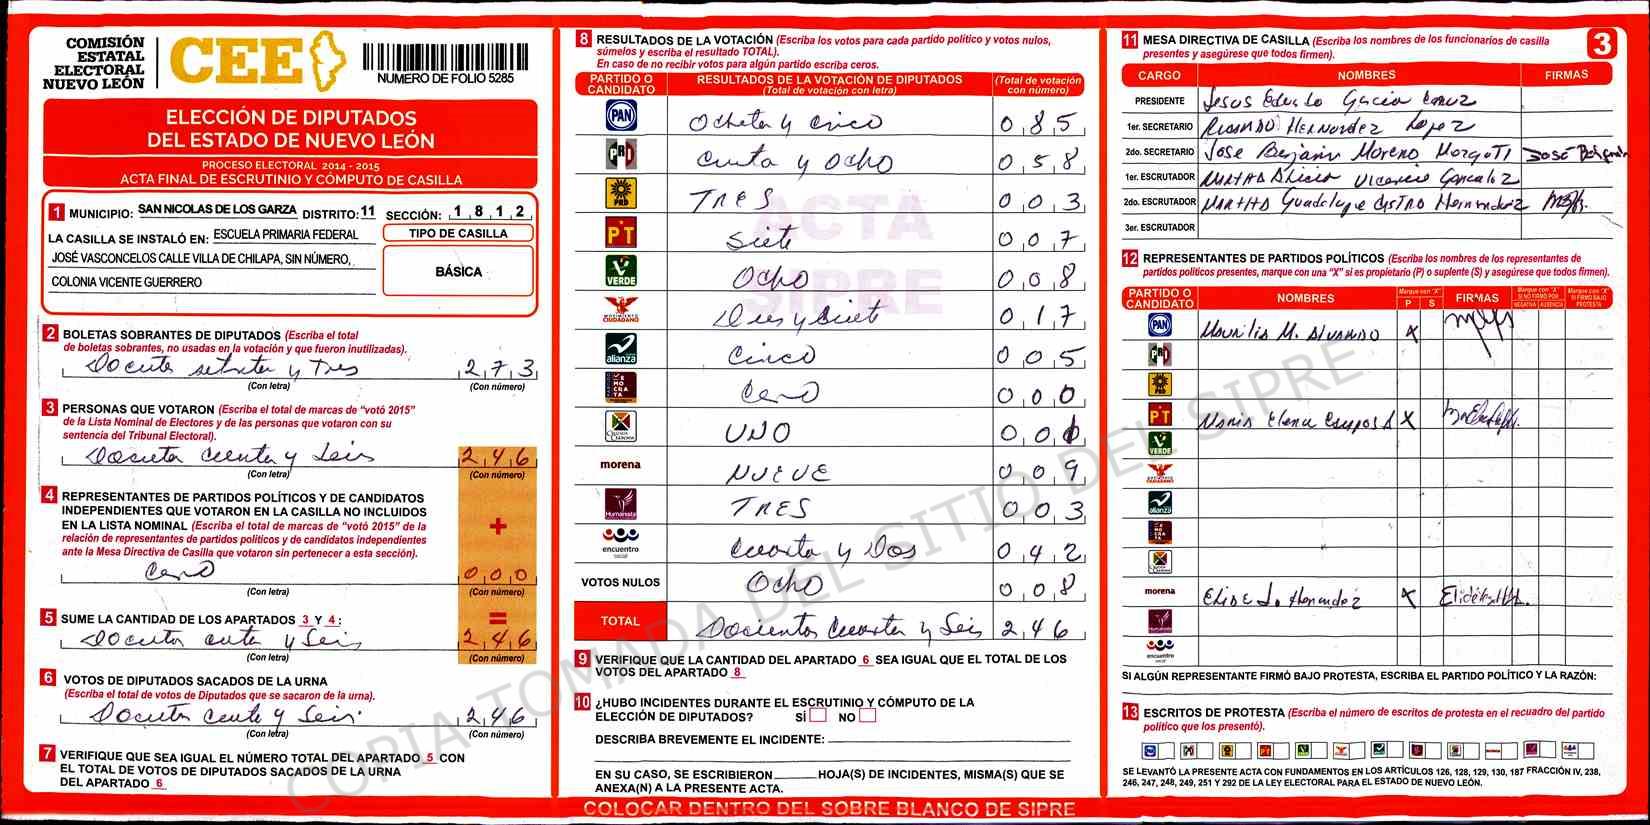 COMISIÓN
ESTATAL
ELECTORAL
NUEVO LEÓN
CEE
NUMERO DE FOLIO 5285
ELECCIÓN DE DIPUTADOS
DEL ESTADO DE NUEVO LEÓN
PROCESO ELECTORAL 2014 - 2015
ACTA FINAL DE ESCRUTINIO Y CÓMPUTO DE CASILLA
1 MUNICIPIO: SAN NICOLAS DE LOS GARZA DISTRITO: 11 SECCIÓN: 1 8 1 2
LA CASILLA SE INSTALÓ EN: ESCUELA PRIMARIA FEDERAL
JOSÉ VASCONCELOS CALLE VILLA DE CHILAPA, SIN NÚMERO,
COLONIA VICENTE GUERRERO
TIPO DE CASILLA
BÁSICA
2 BOLETAS SOBRANTES DE DIPUTADOS (Escriba el total
de boletas sobrantes, no usadas en la votación y que fueron inutilizadas).
y Tres 2 7 3
(Con letra) (Con número)
3 PERSONAS QUE VOTARON (Escriba el total de marcas de "votó 2015"
de la Lista Nominal de Electores y de las personas que votaron con su
sentencia del Tribunal Electoral).
y Seis 2 4 6
(Con letra) (Con número)
4 REPRESENTANTES DE PARTIDOS POLÍTICOS Y DE CANDIDATOS
INDEPENDIENTES QUE VOTARON EN LA CASILLA NO INCLUIDOS
EN LA LISTA NOMINAL (Escriba el total de marcas de "votó 2015" de la
relación de representantes de partidos políticos y de candidatos independientes
ante la Mesa Directiva de Casilla que votaron sin pertenecer a esta sección).
+
Cero 0 0 0
(Con letra) (Con número)
=
5 SUME LA CANTIDAD DE LOS APARTADOS 3 Y 4:
y Seis 2 4 6
(Con letra) (Con número)
6 VOTOS DE DIPUTADOS SACADOS DE LA URNA
(Escriba el total de votos de Diputados que se sacaron de la urna).
y Seis 2 4 6
(Con letra) (Con número)
7 VERIFIQUE QUE SEA IGUAL EL NÚMERO TOTAL DEL APARTADO 5 CON
EL TOTAL DE VOTOS DE DIPUTADOS SACADOS DE LA URNA
DEL APARTADO 6
8 RESULTADOS DE LA VOTACIÓN (Escriba los votos para cada partido político y votos nulos,
súmelos y escriba el resultado TOTAL).
En caso de no recibir votos para algún partido escriba ceros.
PARTIDO O CANDIDATO RESULTADOS DE LA VOTACIÓN DE DIPUTADOS (Total de votación con letra) (Total de votación con número)
PAN y Cinco 0 8 5
PRI y Ocho 0 5 8
PRD TRES 0 0 3
PT Siete 0 0 7
VERDE Ocho 0 0 8
MOVIMIENTO CIUDADANO 0 1 7
alianza Cinco 0 0 5
DEMOCRATA Cero 0 0 0
UNO 0 0 1
morena NUEVE 0 0 9
Humanista TRES 0 0 3
encuentro social y Dos 0 4 2
VOTOS NULOS Ocho 0 0 8
TOTAL Docientos Cuarenta y Seis 2 4 6
ACTA
SIPRE
9 VERIFIQUE QUE LA CANTIDAD DEL APARTADO 6 SEA IGUAL QUE EL TOTAL DE LOS
VOTOS DEL APARTADO 8
10 ¿HUBO INCIDENTES DURANTE EL ESCRUTINIO Y CÓMPUTO DE LA
ELECCIÓN DE DIPUTADOS? SÍ NO
DESCRIBA BREVEMENTE EL INCIDENTE:
EN SU CASO, SE ESCRIBIERON HOJA(S) DE INCIDENTES, MISMA(S) QUE SE
ANEXA(N) A LA PRESENTE ACTA.
COLOCAR DENTRO DEL SOBRE BLANCO DE SIPRE
11 MESA DIRECTIVA DE CASILLA (Escriba los nombres de los funcionarios de casilla
presentes y asegúrese que todos firmen).
3
CARGO NOMBRES FIRMAS
PRESIDENTE Jesus Garcia
1er. SECRETARIO Hernandez Lopez
2do. SECRETARIO Jose Benjamin Moreno José
1er. ESCRUTADOR Martha Alicia Gonzalez
2do. ESCRUTADOR Martha Guadalupe Castro Hernandez
3er. ESCRUTADOR
12 REPRESENTANTES DE PARTIDOS POLÍTICOS (Escriba los nombres de los representantes de
partidos políticos presentes, marque con una "X" si es propietario (P) o suplente (S) y asegúrese que todos firmen).
PARTIDO O CANDIDATO NOMBRES Marque con "X" P S FIRMAS Marque con "X" SI NO FIRMÓ POR NEGATIVA AUSENCIA Marque con "X" SI FIRMÓ BAJO PROTESTA
PAN Maurilia M. Alvarado X
PRI
PRD
PT Maria Elena Campos A X
VERDE
alianza
morena Hernandez X
encuentro social
SI ALGÚN REPRESENTANTE FIRMÓ BAJO PROTESTA, ESCRIBA EL PARTIDO POLÍTICO Y LA RAZÓN:
13 ESCRITOS DE PROTESTA (Escriba el número de escritos de protesta en el recuadro del partido
político que los presentó).
SE LEVANTÓ LA PRESENTE ACTA CON FUNDAMENTOS EN LOS ARTÍCULOS 126, 128, 129, 130, 187 FRACCIÓN IV, 238,
246, 247, 248, 249, 251 Y 292 DE LA LEY ELECTORAL PARA EL ESTADO DE NUEVO LEÓN.
COPIA TOMADA DEL SITIO DEL SIPRE